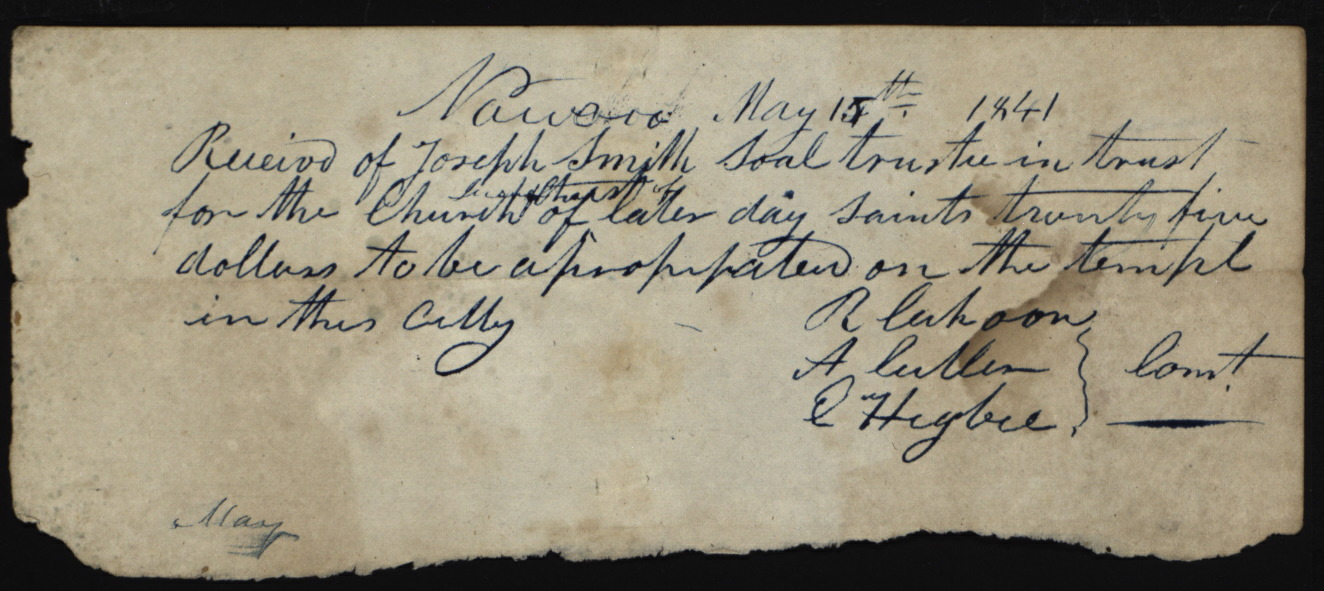 Nauvoo May 15th 1841
Receivd of Joseph Smith Soal trustee in trust
Jesus Christ of
for the Church of later day saints twenty five
dollars to be apropropated on the templ
in this Citty
R Cahoon
A Cutler } Comt.
E Higbee
May